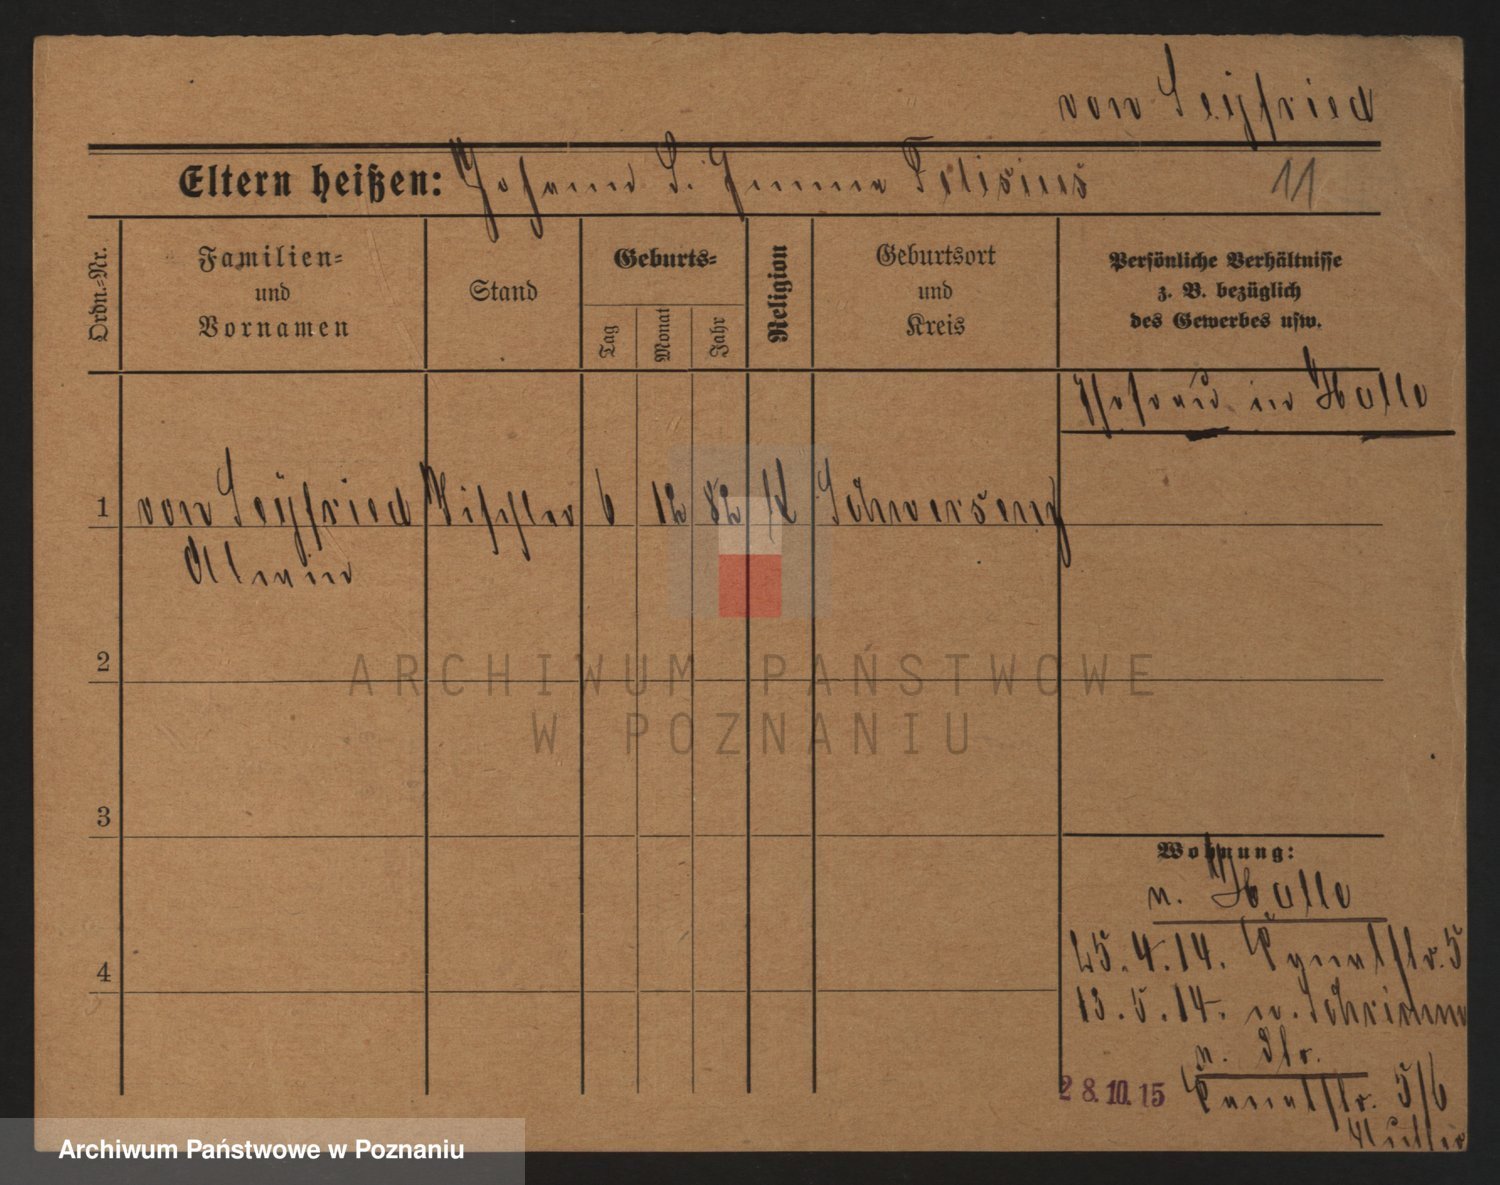 von Seyfried
Eltern heißen: Johann u. Emma Felisius
11
Ordn.-Nr.
Familien-
und
Vornamen
Stand
Geburts-
Tag
Monat
Jahr
Religion
Geburtsort
und
Kreis
Persönliche Verhältnisse
z. B. bezüglich
des Gewerbes usw.
Ehefrau in Halle
1 von Seyfried Tischler 6 12 82 K Schwersenz
Alwin
2
3
4
ARCHIWUM PAŃSTWOWE
W POZNANIU
Wohnung:
n. Halle
25.4.14. Kanalstr. 5
13.5.14. n. Schrimm
28.10.15 Kanalstr. 5/6
Archiwum Państwowe w Poznaniu